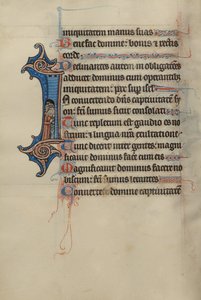 iniquitatem manus suas
Benefac domine: bonis et rectis
corde
Declinantes autem in obligatões
adducet dominus cum operantib;
iniquitatem: pax sup isrł
In conuertendo dñs captiuitatẽ sy
on: facti sumus sicut consolati
Tunc repletum est gaudio os no
strum: et lingua nr̃a exultatione
Tunc dicent inter gentes: magni
ficauit dominus facere cum eis
Magnificauit dominus facere no
biscum: facti sumus letantes
Conuerte domine captiuitatẽ